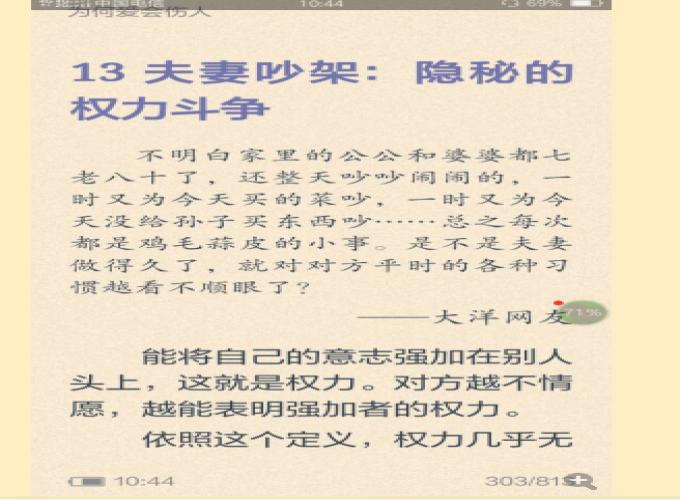 中国电信 10:44 69%
为何爱会伤人
13 夫妻吵架：隐秘的
权力斗争
不明白家里的公公和婆婆都七
老八十了，还整天吵吵闹闹的，一
时又为今天买的菜吵，一时又为今
天没给孙子买东西吵……总之每次
都是鸡毛蒜皮的小事。是不是夫妻
做得久了，就对对方平时的各种习
惯越看不顺眼了？
——大洋网友
71%
能将自己的意志强加在别人
头上，这就是权力。对方越不情
愿，越能表明强加者的权力。
依照这个定义，权力几乎无
10:44 303/81